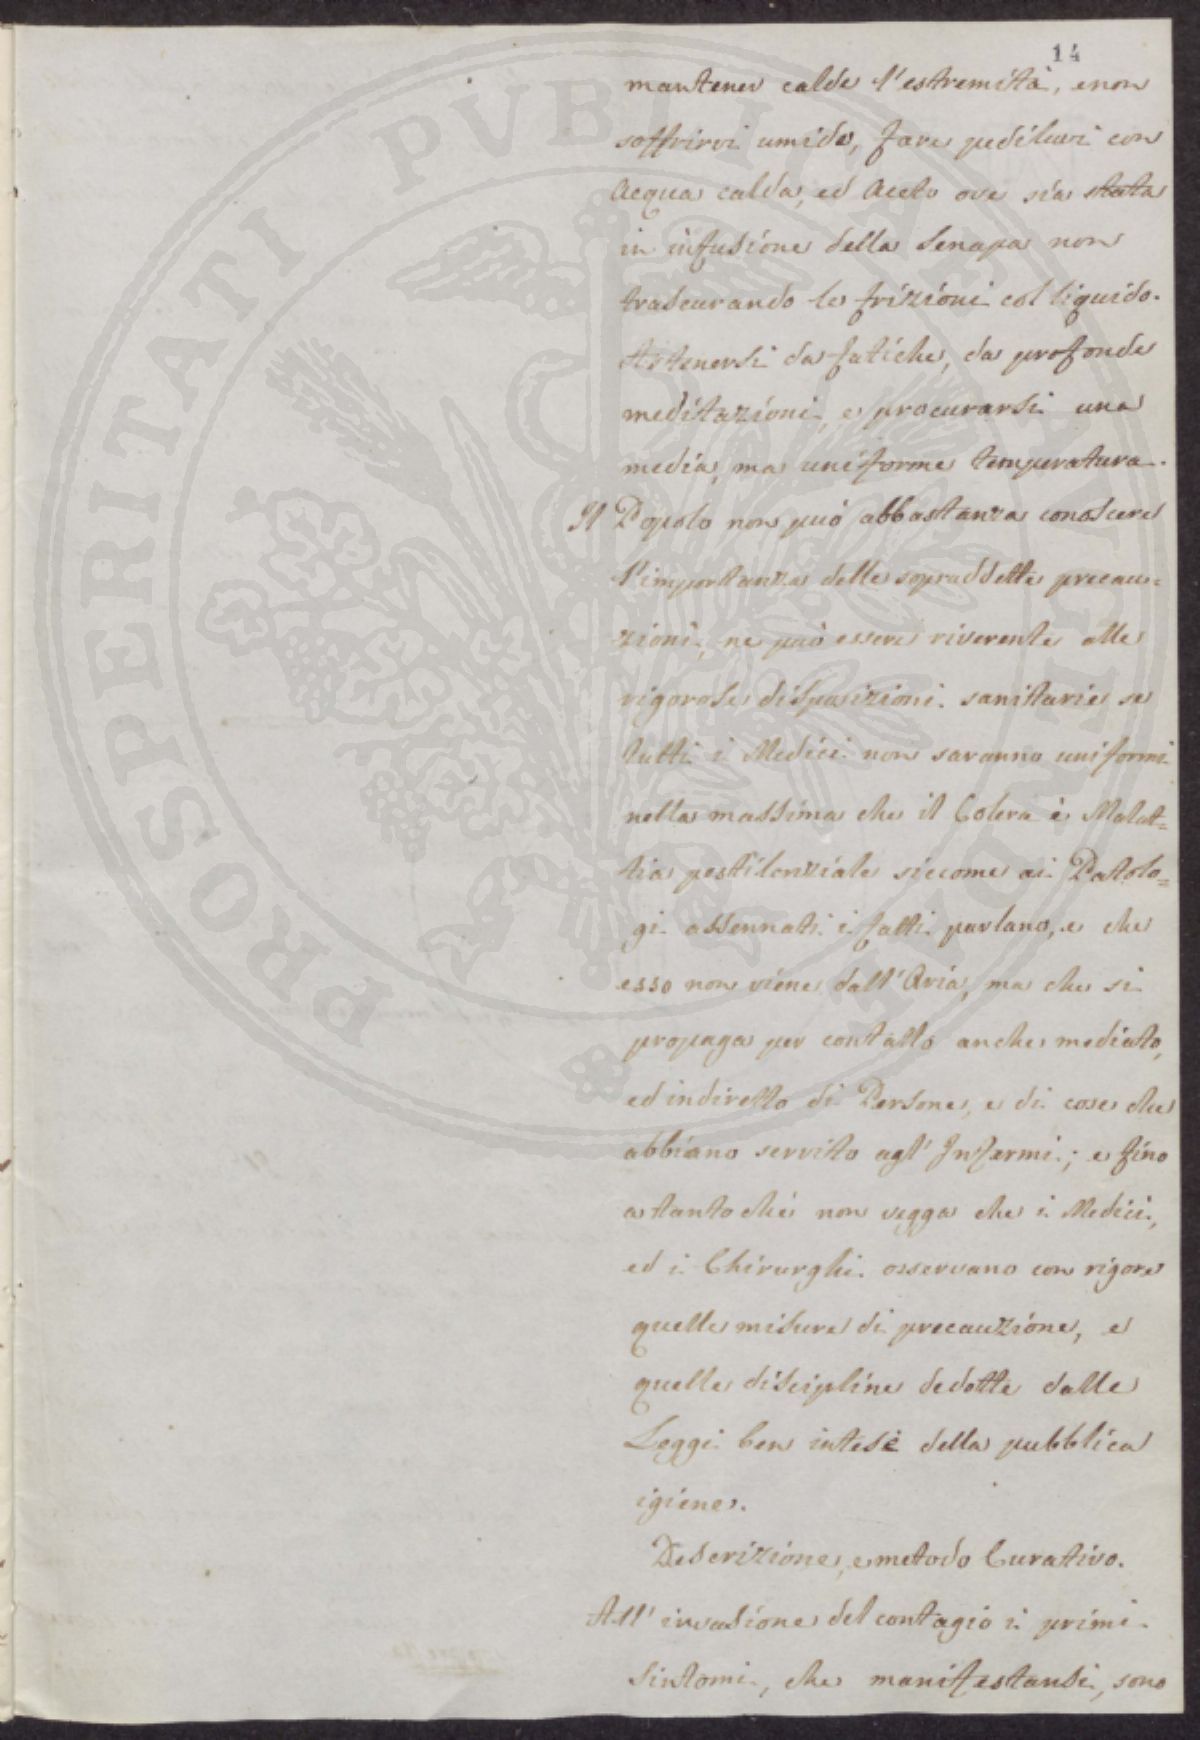 14
mantener calde l'estremità, e non
soffrirvi umido, fare pediluvi con
Acqua calda, ed Aceto ove sia stata
in infusione della Senapa non
trascurando le frizioni col liquido.
Astenersi da fatiche, da profonde
meditazioni, e procurarsi una
media, ma uniforme temperatura.
Il Popolo non può abbastanza conoscere
l'importanza delle sopraddette precau=
zioni, ne può essere riverente alle
rigorose disposizioni sanitarie se
tutti i Medici non saranno uniformi
nella massima che il Colera è Malat=
tia pestilenziale siccome ai Patolo=
gi assennati i fatti parlano, e che
esso non viene dall'Aria, ma che si
propaga per contatto anche mediato,
ed indiretto di Persone, e di cose che
abbiano servito agl'Infermi; e fino
a tanto ché non vegga che i Medici,
ed i Chirurghi osservano con rigore
quelle misure di precauzione, e
quelle discipline dedotte dalle
Leggi ben intese della pubblica
igiene.
Descrizione, e metodo Curativo.
All'invasione del contagio i primi
Sintomi, che manifestansi, sono
PROSPERITATI PVBLICAE